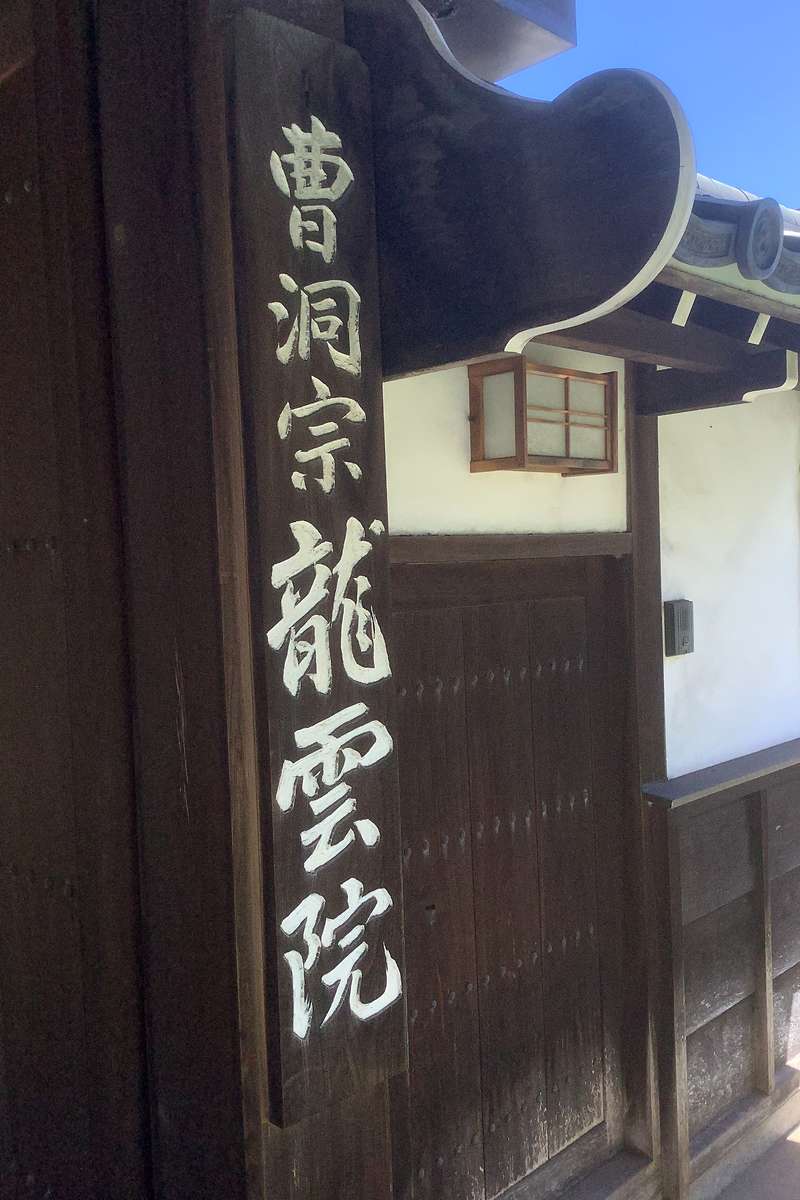 曹洞宗龍雲院